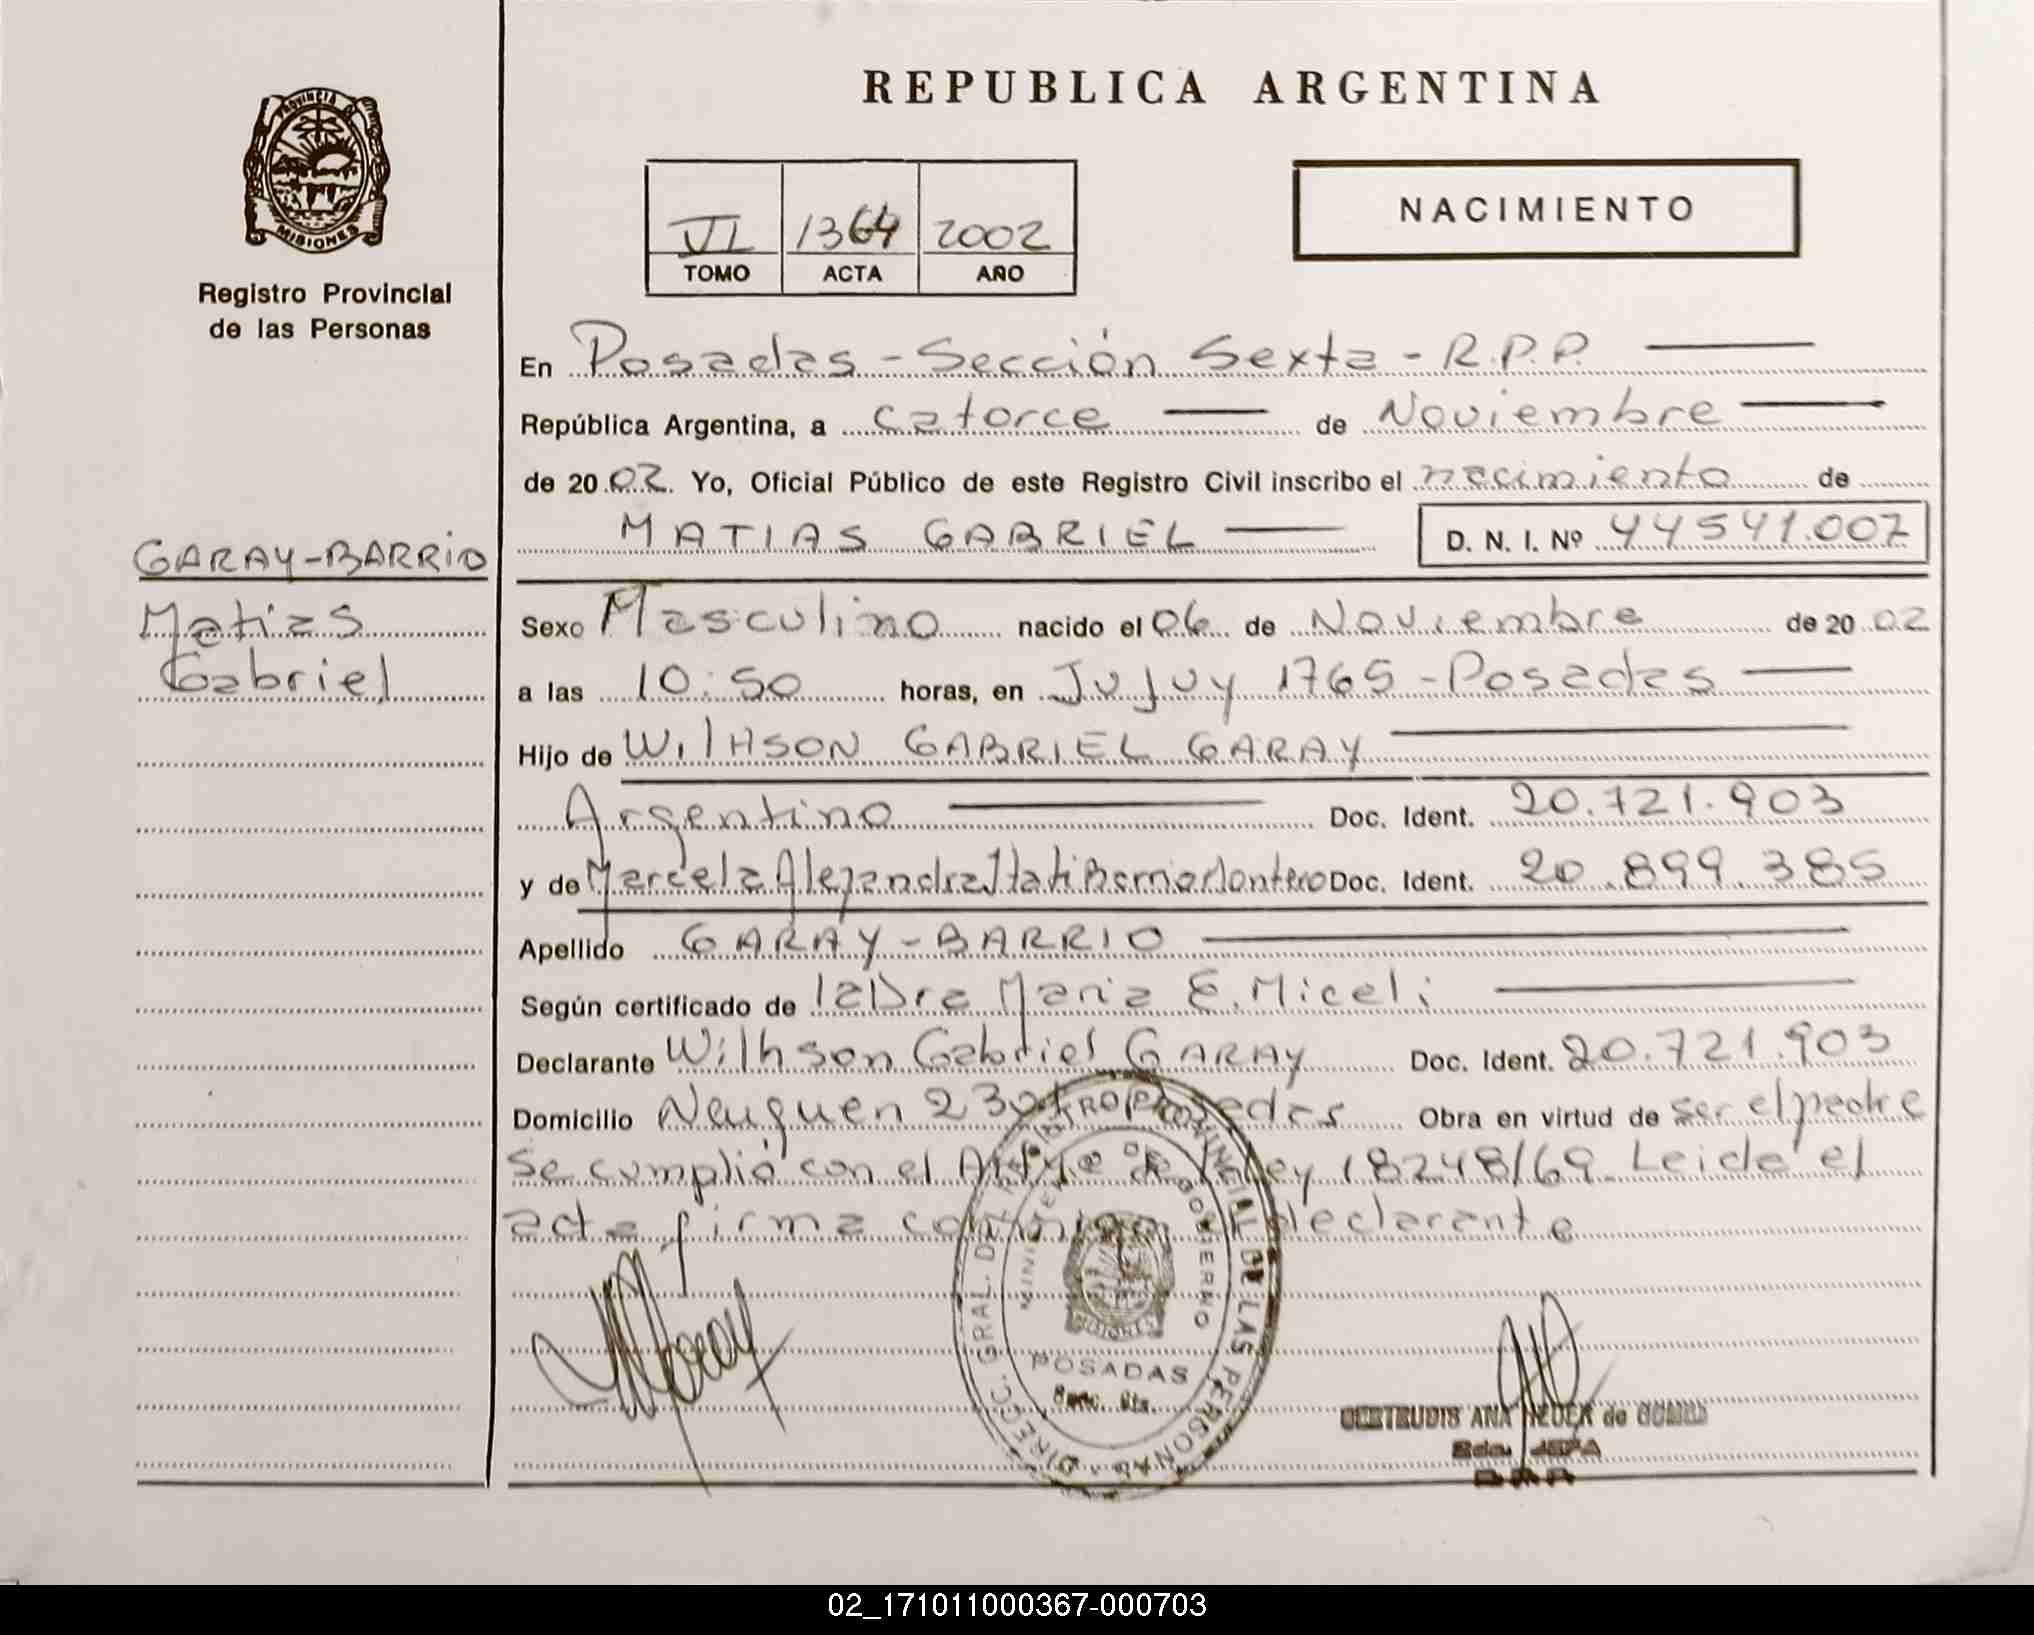 REPUBLICA ARGENTINA
PROVINCIA DE
MISIONES
Registro Provincial
de las Personas
VI 1364 2002
TOMO ACTA AÑO
NACIMIENTO
En Posadas - Sección Sexta - R.P.P.
República Argentina, a catorce de Noviembre
de 2002. Yo, Oficial Público de este Registro Civil inscribo el nacimiento de
MATIAS GABRIEL D. N. I. Nº 44541.007
GARAY-BARRIO
Matias
Gabriel
Sexo Masculino nacido el 06 de Noviembre de 2002
a las 10:50 horas, en Jujuy 1765 - Posadas
Hijo de WilHSON GABRIEL GARAY
Argentino Doc. Ident. 20.721.903
y de Marcela Alejandra Itati Barrio Montero Doc. Ident. 20.899.385
Apellido GARAY-BARRIO
Según certificado de la Dra Maria E. Miceli
Declarante Wilhson Gabriel GARAY Doc. Ident. 20.721.903
Domicilio Neuquen Posadas Obra en virtud de ser el padre
se cumplió con el Ley 18248/69. Leida el
acta firma conmigo el declarante
DIRECC. GRAL. DEL REGISTRO PROVINCIAL DE LAS PERSONAS
MINISTERIO DE GOBIERNO
MISIONES
POSADAS
Secc. 6ta.
GERTRUDIS ANA de
JEFA
02_171011000367-000703